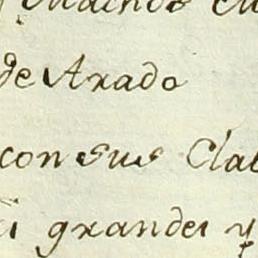 de Arado
con sus Cla
grandes y